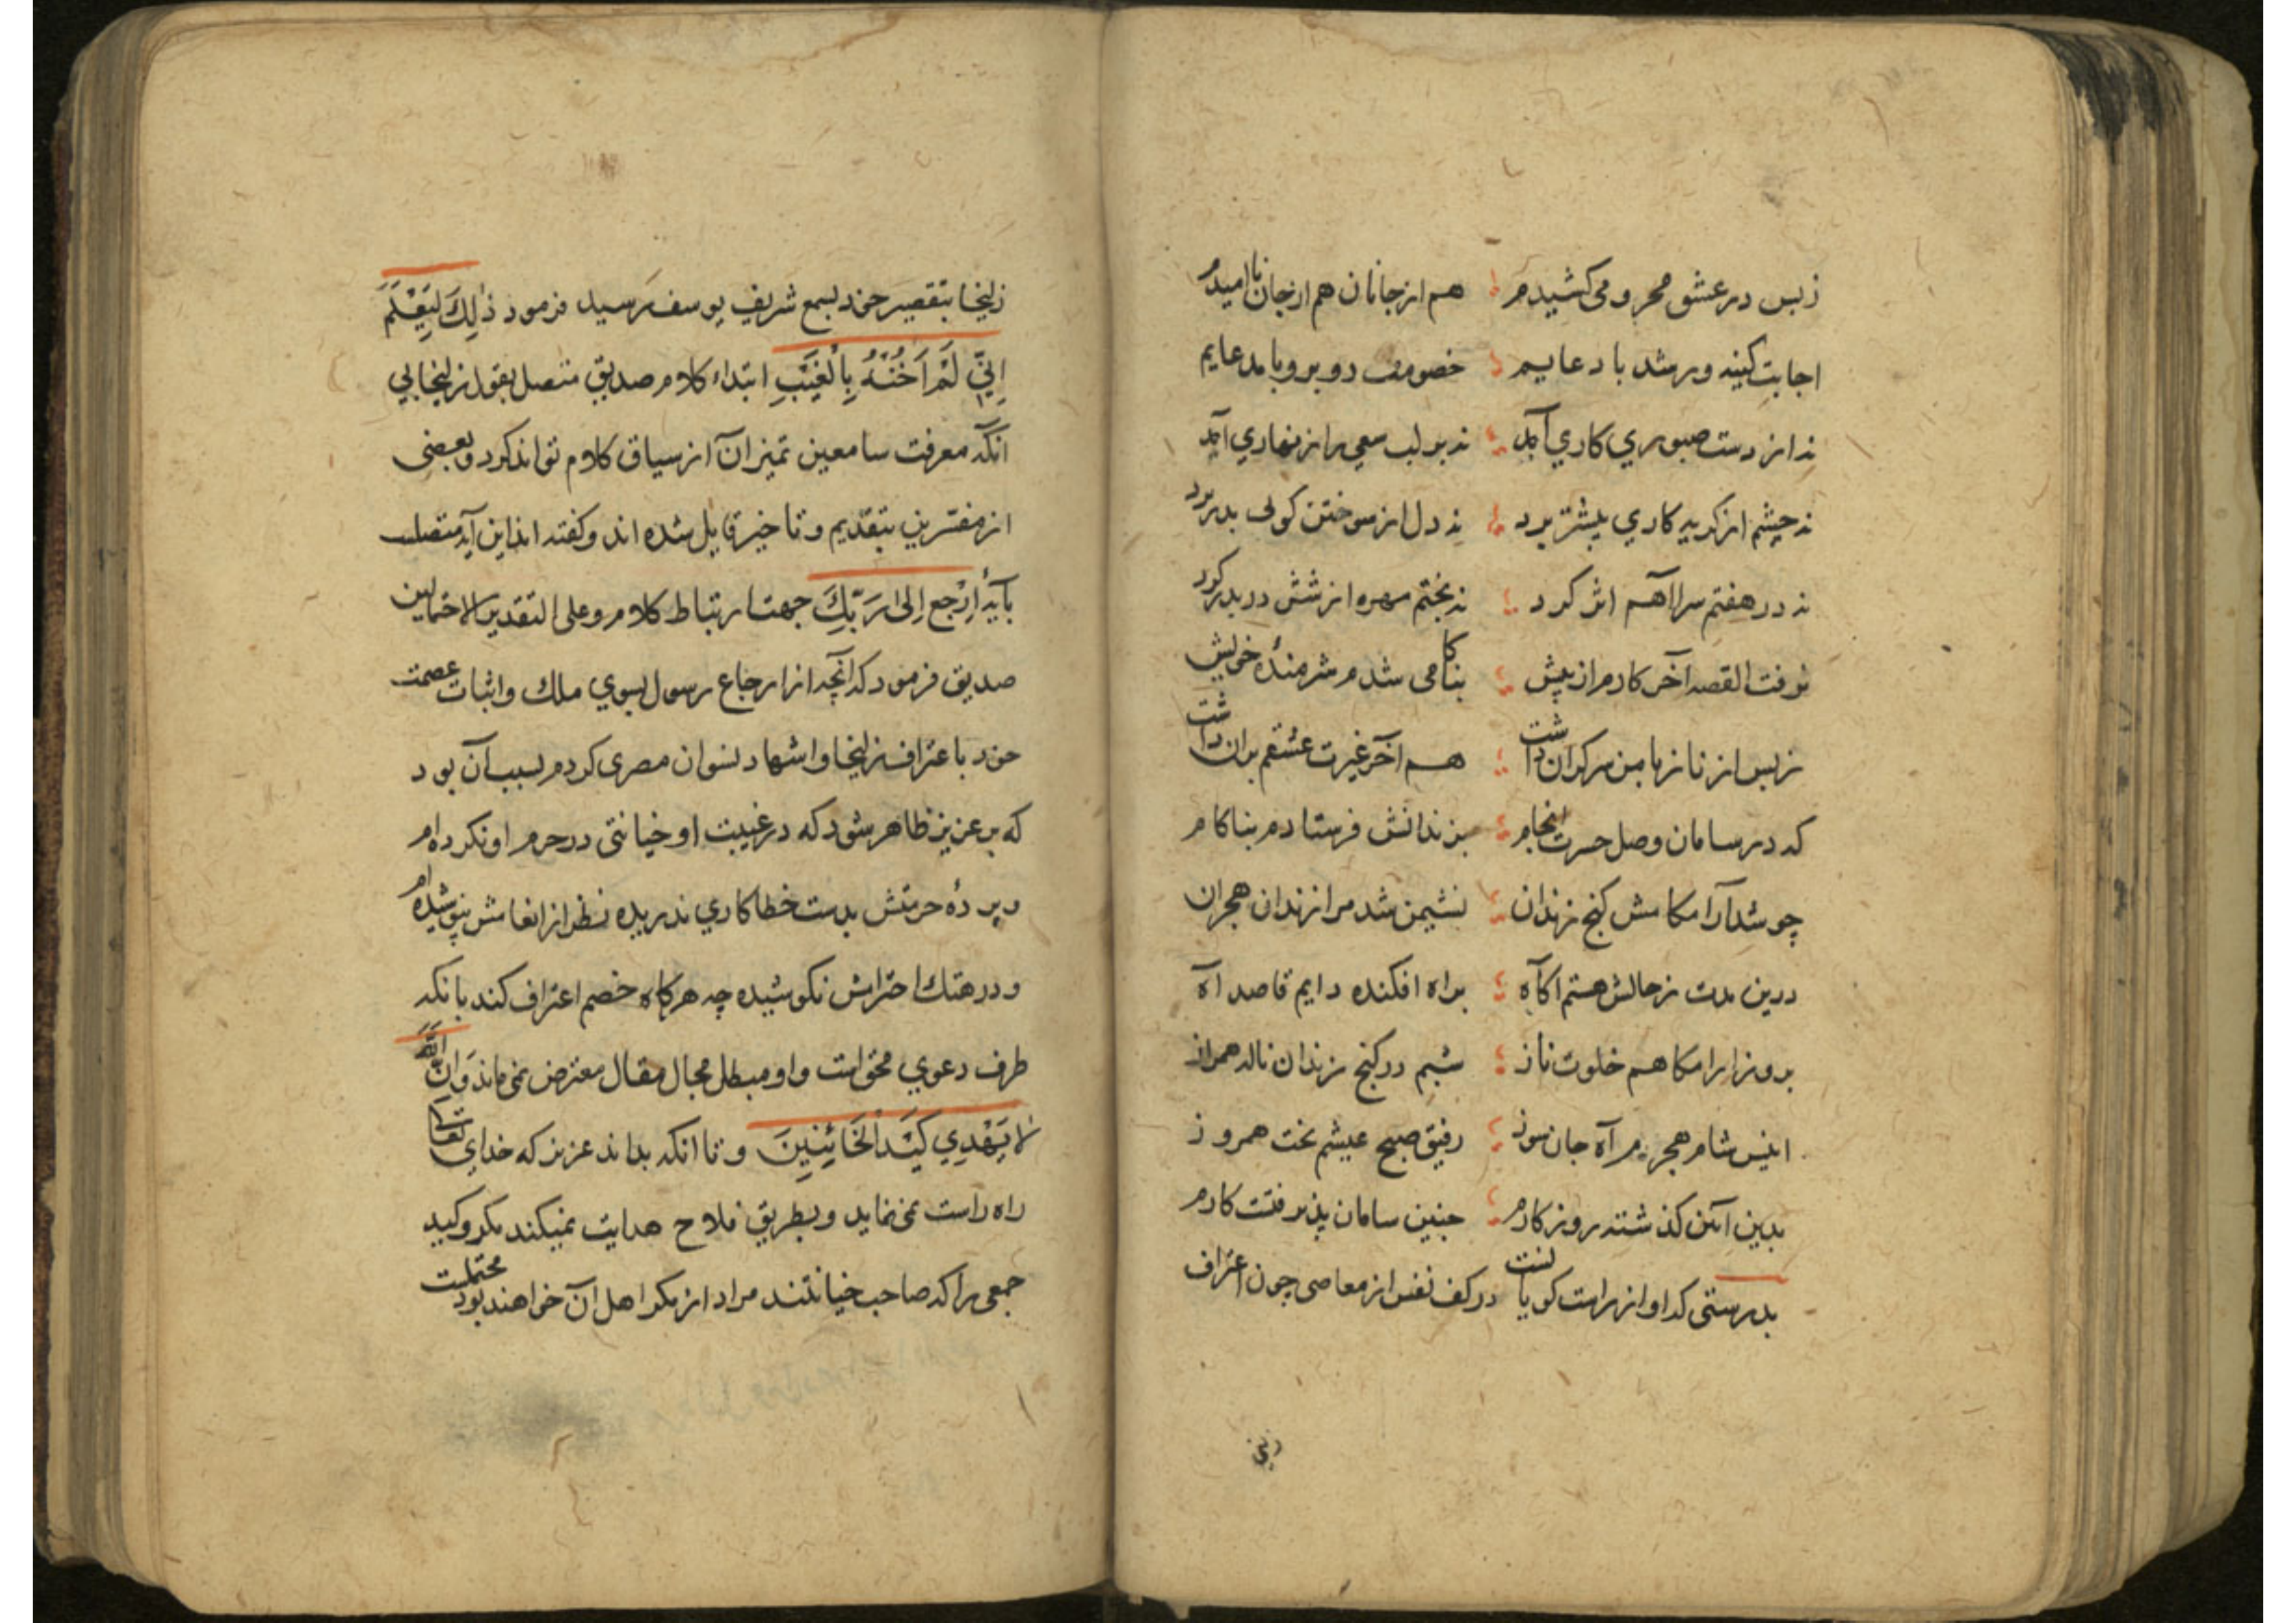 زبس در عشق محرومی کشیدم هم از جانان هم از جان ناامیدم
اجابت کینه ور شد با دعایم خصومت روبرو با مدعایم
نه از دست صبوری کاری آمد نه بر لب سعی را زنهاری آمد
نه چشم از کریه کاری پیشتر برد نه دل از سوختن کوئی بدر برد
نه در هفتم سرا آهم اثر کرد نه بختم مهره از ششدر بدر کرد
نرفت القصه آخر کارم از پیش بناکامی شدم شرمندهٔ خویش
زبس از ناز با من سرکران داشت هم آخر غیرت عشقم بران داشت
که در سامان وصل حسرت انجام بزندانش فرستادم بناکام
چو شد آرامکامش کنج زندان نشیمن شد مرا زندان هجران
درین مدت زحالش هستم اکاه براه افکنده دایم قاصد آه
بروز ارامکاهم خلوت ناز شبم در کنج زندان ناله همراز
انیس شام هجرم آه جان سوز رفیق صبح عیشم بخت همروز
بدین آئین کذشته روزکارم چنین سامان پذیرفتست کارم
بدرستی که او از راست کویانست در کف نفس از معاصی چون اعتراف
زلیخا بتقصیر خود بسمع شریف یوسف رسید فرمود ذٰلِكَ لِيَعْلَمَ
اِنِّي لَمْ اَخُنْهُ بِالْغَيْبِ ابتداء کلام صدیق متصل بقول زلیخا بی
انکه معرفت سامعین تمیز آن از سیاق کلام تواند کرد و بعضی
از مفسرین بتقدیم و تاخیر قایل شده اند و کفته اند این آیه متصلست
بآیه اِرْجِع اِلىٰ رَبِّكَ جهت ارتباط کلام و علی التقدیر الاحتمالین
صدیق فرمود که آنچه از ارجاع رسول بسوی ملك و اثبات عصمت
خود باعتراف زلیخا و اشهاد نسوان مصری کردم بسبب آن بود
که بر عزیز ظاهر شود که در غیبت او خیانتی در حرم او نکرده ام
و پردهٔ حرمتش بدست خطا کاری ندریده نظر از انعامش نپوشیده ام
و در هتك احترامش نکوشیده چه هرکاه خصم اعتراف کند بانکه
طرف دعوی محق است و او مبطل مجال مقال معترض نمی ماند وَ انَّ اللّٰهَ
لا يَهْدِي كَيْدَ الْخَائِنِينَ و تا انکه بداند عزیز که خدای تعالی
راه راست نمی نماید و بطریق فلاح هدایت نمیکند مکر و کید
جمعی را که صاحب خیانتند مراد از مکر اهل آن خواهند بود محتملست